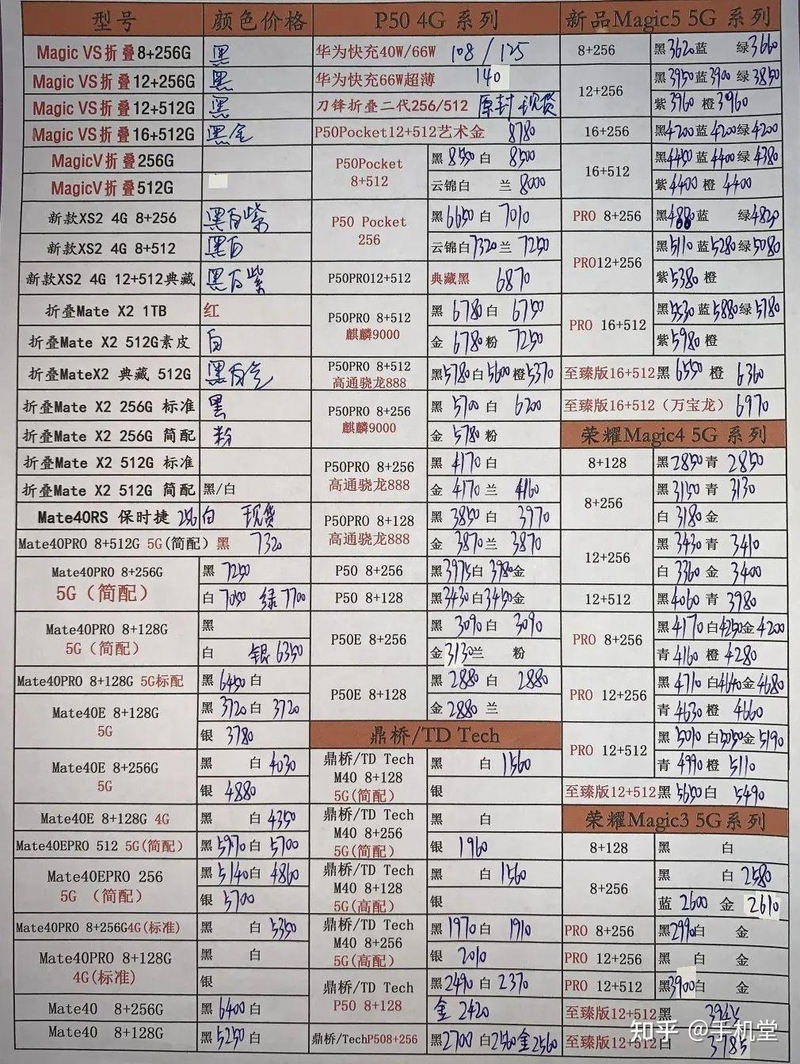 型号 颜色价格
Magic VS折叠8+256G 黑
Magic VS折叠12+256G 黑
Magic VS折叠12+512G 黑
Magic VS折叠16+512G 黑金
MagicV折叠256G
MagicV折叠512G
新款XS2 4G 8+256 黑白紫
新款XS2 4G 8+512 黑白
新款XS2 4G 12+512典藏 黑白紫
折叠Mate X2 1TB 红
折叠Mate X2 512G素皮 白
折叠MateX2 典藏 512G 黑白
折叠Mate X2 256G 标准 黑
折叠Mate X2 256G 简配 粉
折叠Mate X2 512G 标准
折叠Mate X2 512G 简配 黑/白
Mate40RS 保时捷 256 白 现货
Mate40PRO 8+512G 5G(简配) 黑 7320
Mate40PRO 8+256G
5G(简配)
黑 7250
白 7050 绿 7700
Mate40PRO 8+128G
5G(简配)
黑
白 银 6350
Mate40PRO 8+128G 5G标配 黑 6450 白
Mate40E 8+128G
5G
黑 3720 白 3720
银 3780
Mate40E 8+256G
5G
黑 白 4030
银 4880
Mate40E 8+128G 4G 黑 白 4350
Mate40EPRO 512 5G(简配) 黑 5970 白 5700
Mate40EPRO 256
5G (简配)
黑 5140 白 4860
银 5700
Mate40PRO 8+256G4G(标准) 黑 白 5350
Mate40PRO 8+128G
4G(标准)
黑 白
银
Mate40 8+256G 黑 6400 白
Mate40 8+128G 黑 5250 白
P50 4G 系列
华为快充40W/66W 108 / 125
华为快充66W超薄 140
刀锋折叠二代256/512 原封 现货
P50Pocket12+512艺术金 8780
P50Pocket
8+512
黑 8550 白 8500
云锦白 兰 8000
P50 Pocket
256
黑 6650 白 7010
云锦白 7320 兰 7250
P50PRO12+512 典藏黑 6870
P50PRO 8+512
麒麟9000
黑 6780 白 6750
金 6780 粉 7250
P50PRO 8+512
高通骁龙888
黑 5780 白 5600 橙 5370
P50PRO 8+256
麒麟9000
黑 5700 白 6200
金 5780 粉
P50PRO 8+256
高通骁龙888
黑 4170 白
金 4170 兰 4160
P50PRO 8+128
高通骁龙888
黑 3850 白 3970
金 3870 兰 3870
P50 8+256 黑 3975 白 3980 金
P50 8+128 黑 3430 白 3450 金
P50E 8+256
黑 3090 白 3090
金 3130 兰 粉
P50E 8+128
黑 2880 白 2880
金 2880 兰
鼎桥/TD Tech
鼎桥/TD Tech
M40 8+128
5G(简配)
黑 白 1560
银
鼎桥/TD Tech
M40 8+256
5G(简配)
黑 白
银 1960
鼎桥/TD Tech
M40 8+128
5G(高配)
黑 白 1560
银
鼎桥/TD Tech
M40 8+256
5G(高配)
黑 1970 白 1910
银 2010
鼎桥/TD Tech
P50 8+128
黑 2490 白 2370
金 2420
鼎桥/TechP508+256 黑 2700 白 2560 金 2560
新品Magic5 5G 系列
8+256 黑 3620 蓝 绿 3660
12+256
黑 3950 蓝 3900 绿 3850
紫 3960 橙 3960
16+256 黑 4200 蓝 4200 绿 4200
16+512
黑 4450 蓝 4400 绿 4380
紫 4400 橙 4400
PRO 8+256 黑 4880 蓝 绿 4820
PRO12+256
黑 5110 蓝 5280 绿 5080
紫 5380 橙
PRO 16+512
黑 5530 蓝 5880 绿 5780
紫 5980 橙
至臻版16+512 黑 6550 橙 6360
至臻版16+512 (万宝龙) 6970
荣耀Magic4 5G 系列
8+128 黑 2850 青 2850
8+256
黑 3150 青 3130
白 3180 金
12+256
黑 3430 青 3410
白 3360 金 3400
12+512 黑 4060 青 3780
PRO 8+256
黑 4170 白 4250 金 4200
青 4160 橙 4280
PRO 12+256
黑 4710 白 4640 金 4680
青 4630 橙 4660
PRO 12+512
黑 5010 白 5050 金 5190
青 4990 橙 5110
至臻版12+512 黑 5650 白 5490
荣耀Magic3 5G 系列
8+128 黑 白
8+256
黑 白 2580
蓝 2600 金 2610
PRO 8+256 黑 2990 白 金
PRO 12+256 黑 白 金
PRO 12+512 黑 3900 白 金
至臻版12+512 黑
至臻版12+512 白 3785
知乎 @手机堂